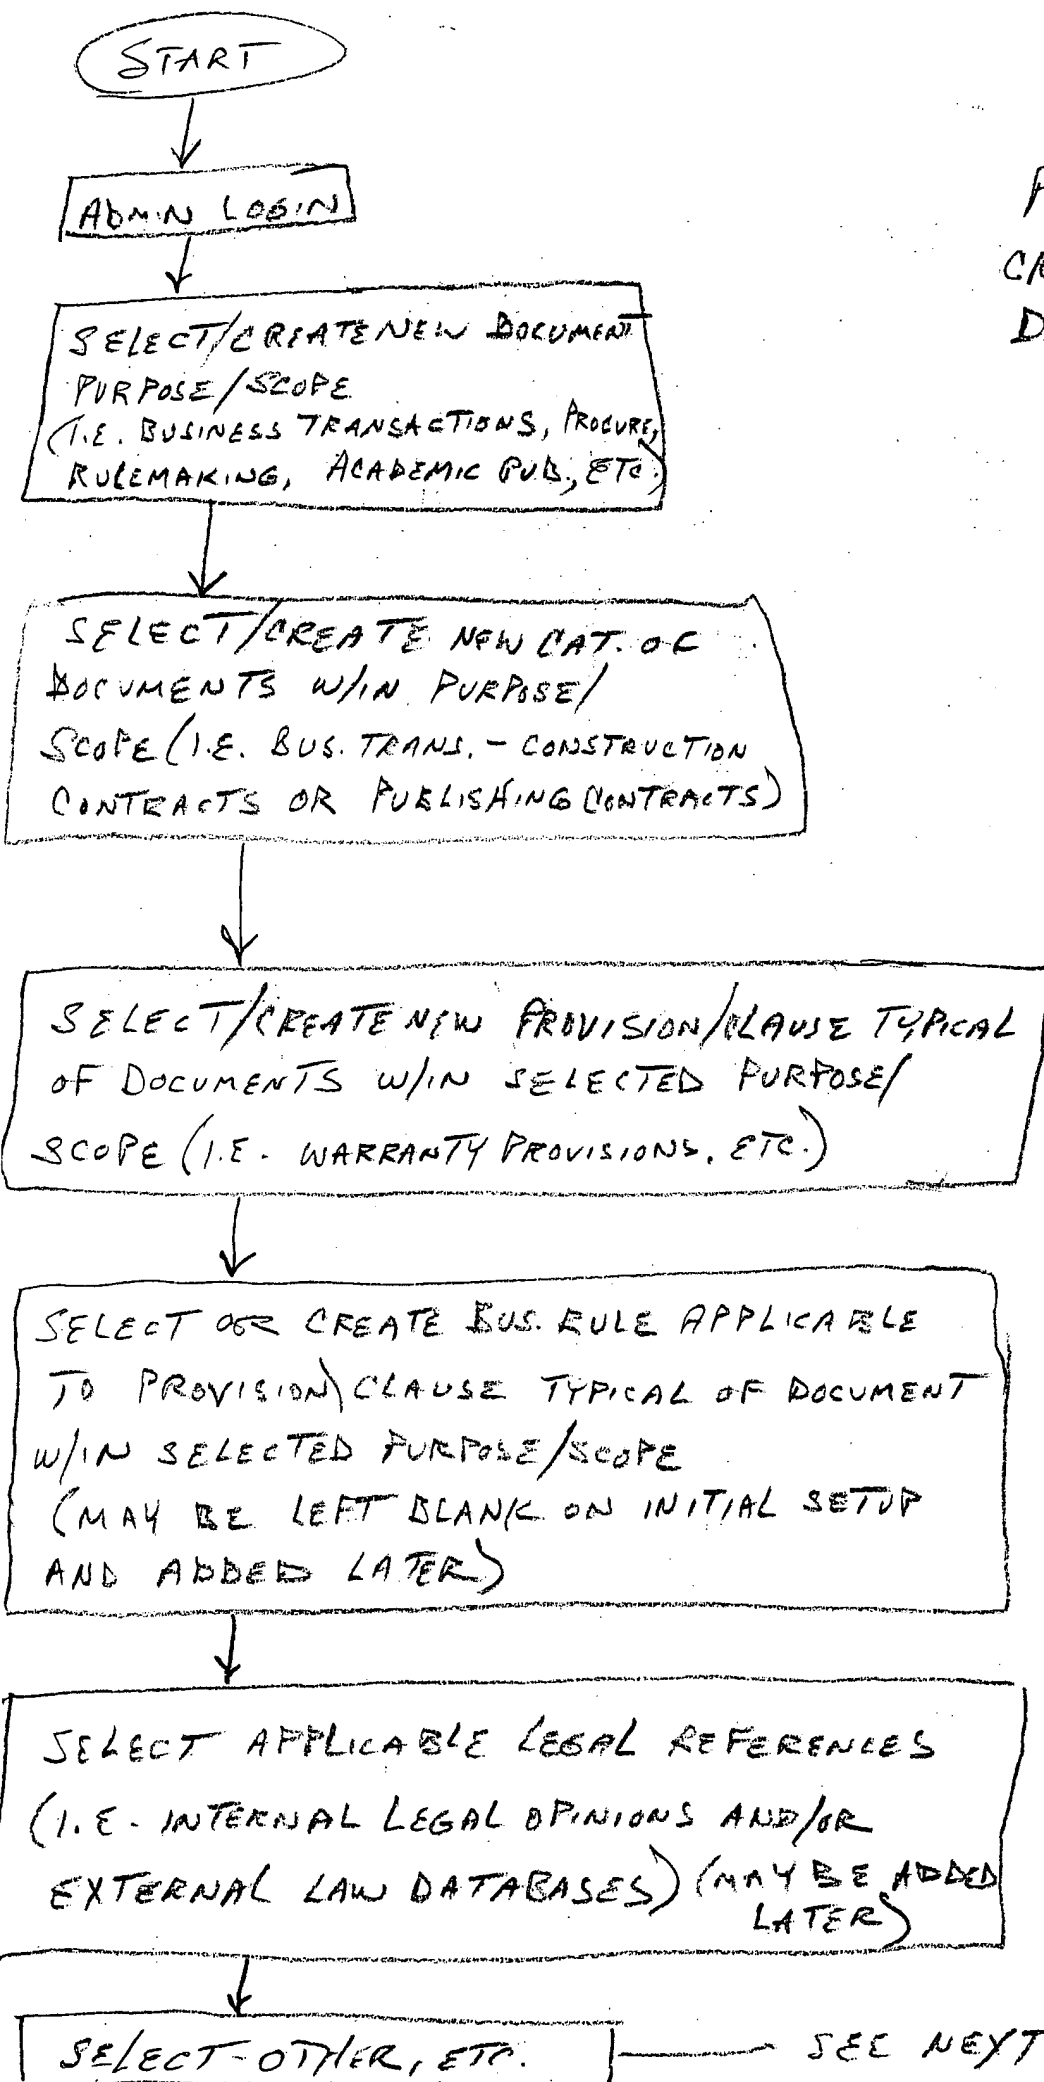 START
ADMIN LOGIN
SELECT/CREATE NEW DOCUMENT
PURPOSE/SCOPE
(I.E. BUSINESS TRANSACTIONS, PROCURE,
RULEMAKING, ACADEMIC PUB., ETC.)
CR
D
SELECT/CREATE NEW CAT. OF
DOCUMENTS W/IN PURPOSE/
SCOPE (I.E. BUS. TRANS. - CONSTRUCTION
CONTRACTS OR PUBLISHING CONTRACTS)
SELECT/CREATE NEW PROVISION/CLAUSE TYPICAL
OF DOCUMENTS W/IN SELECTED PURPOSE/
SCOPE (I.E. WARRANTY PROVISIONS, ETC.)
SELECT OR CREATE BUS. RULE APPLICABLE
TO PROVISION\CLAUSE TYPICAL OF DOCUMENT
W/IN SELECTED PURPOSE/SCOPE
(MAY BE LEFT BLANK ON INITIAL SETUP
AND ADDED LATER)
SELECT APPLICABLE LEGAL REFERENCES
(I.E. INTERNAL LEGAL OPINIONS AND/OR
EXTERNAL LAW DATABASES) (MAY BE ADDED
LATER)
SELECT-OTHER, ETC. SEE NEXT